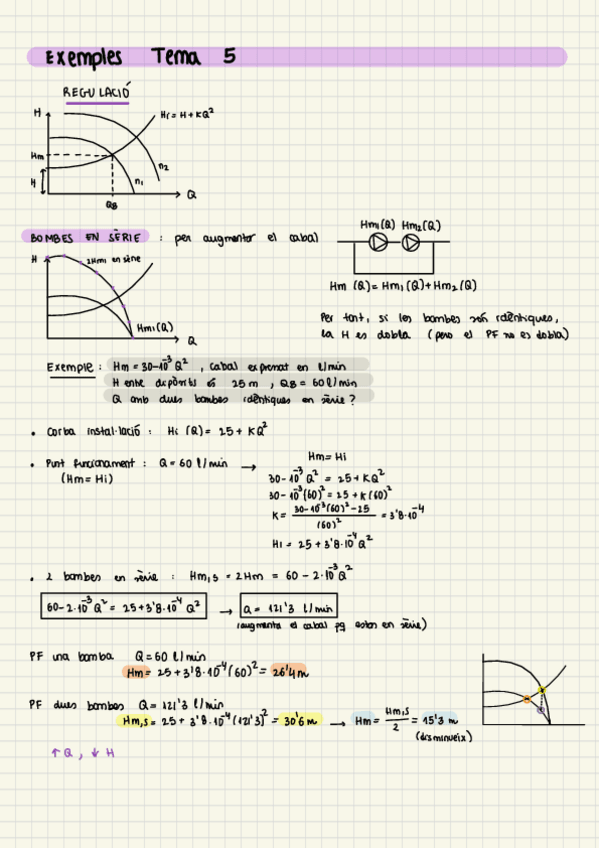 Exemples Tema 5
REGULACIÓ
H
Hi = H + KQ²
Hm
H
n₂
n₁
Q
QB
BOMBES EN SÈRIE : per augmentar el cabal
Hm₁(Q) Hm₂(Q)
H
2Hm₁ en sèrie
Hm (Q) = Hm₁(Q) + Hm₂(Q)
Hm₁(Q)
Q
Per tant, si les bombes són idèntiques,
la H es dobla (però el PF no es dobla)
Exemple : Hm = 30-10⁻³ Q² , cabal expressat en l/min
H entre dipòsits és 25 m , QB = 60 l/min
Q amb dues bombes idèntiques en sèrie ?
• Corba instal·lació : Hi (Q) = 25 + KQ²
• Punt funcionament : Q = 60 l/min → Hm = Hi
(Hm = Hi)
30-10⁻³ Q² = 25 + KQ²
30-10⁻³(60)² = 25 + K(60)²
K = 30-10⁻³(60)²-25 / (60)² = 3'8·10⁻⁴
Hi = 25 + 3'8·10⁻⁴ Q²
• 2 bombes en sèrie : Hm,s = 2Hm = 60 - 2·10⁻³ Q²
60-2·10⁻³ Q² = 25+3'8·10⁻⁴ Q² → Q = 121'3 l/min
(augmenta el cabal pq estan en sèrie)
PF una bomba Q = 60 l/min
Hm = 25 + 3'8·10⁻⁴(60)² = 26'4 m
PF dues bombes Q = 121'3 l/min
Hm,s = 25 + 3'8·10⁻⁴(121'3)² = 30'6 m → Hm = Hm,s / 2 = 15'3 m
(disminueix)
↑ Q , ↓ H